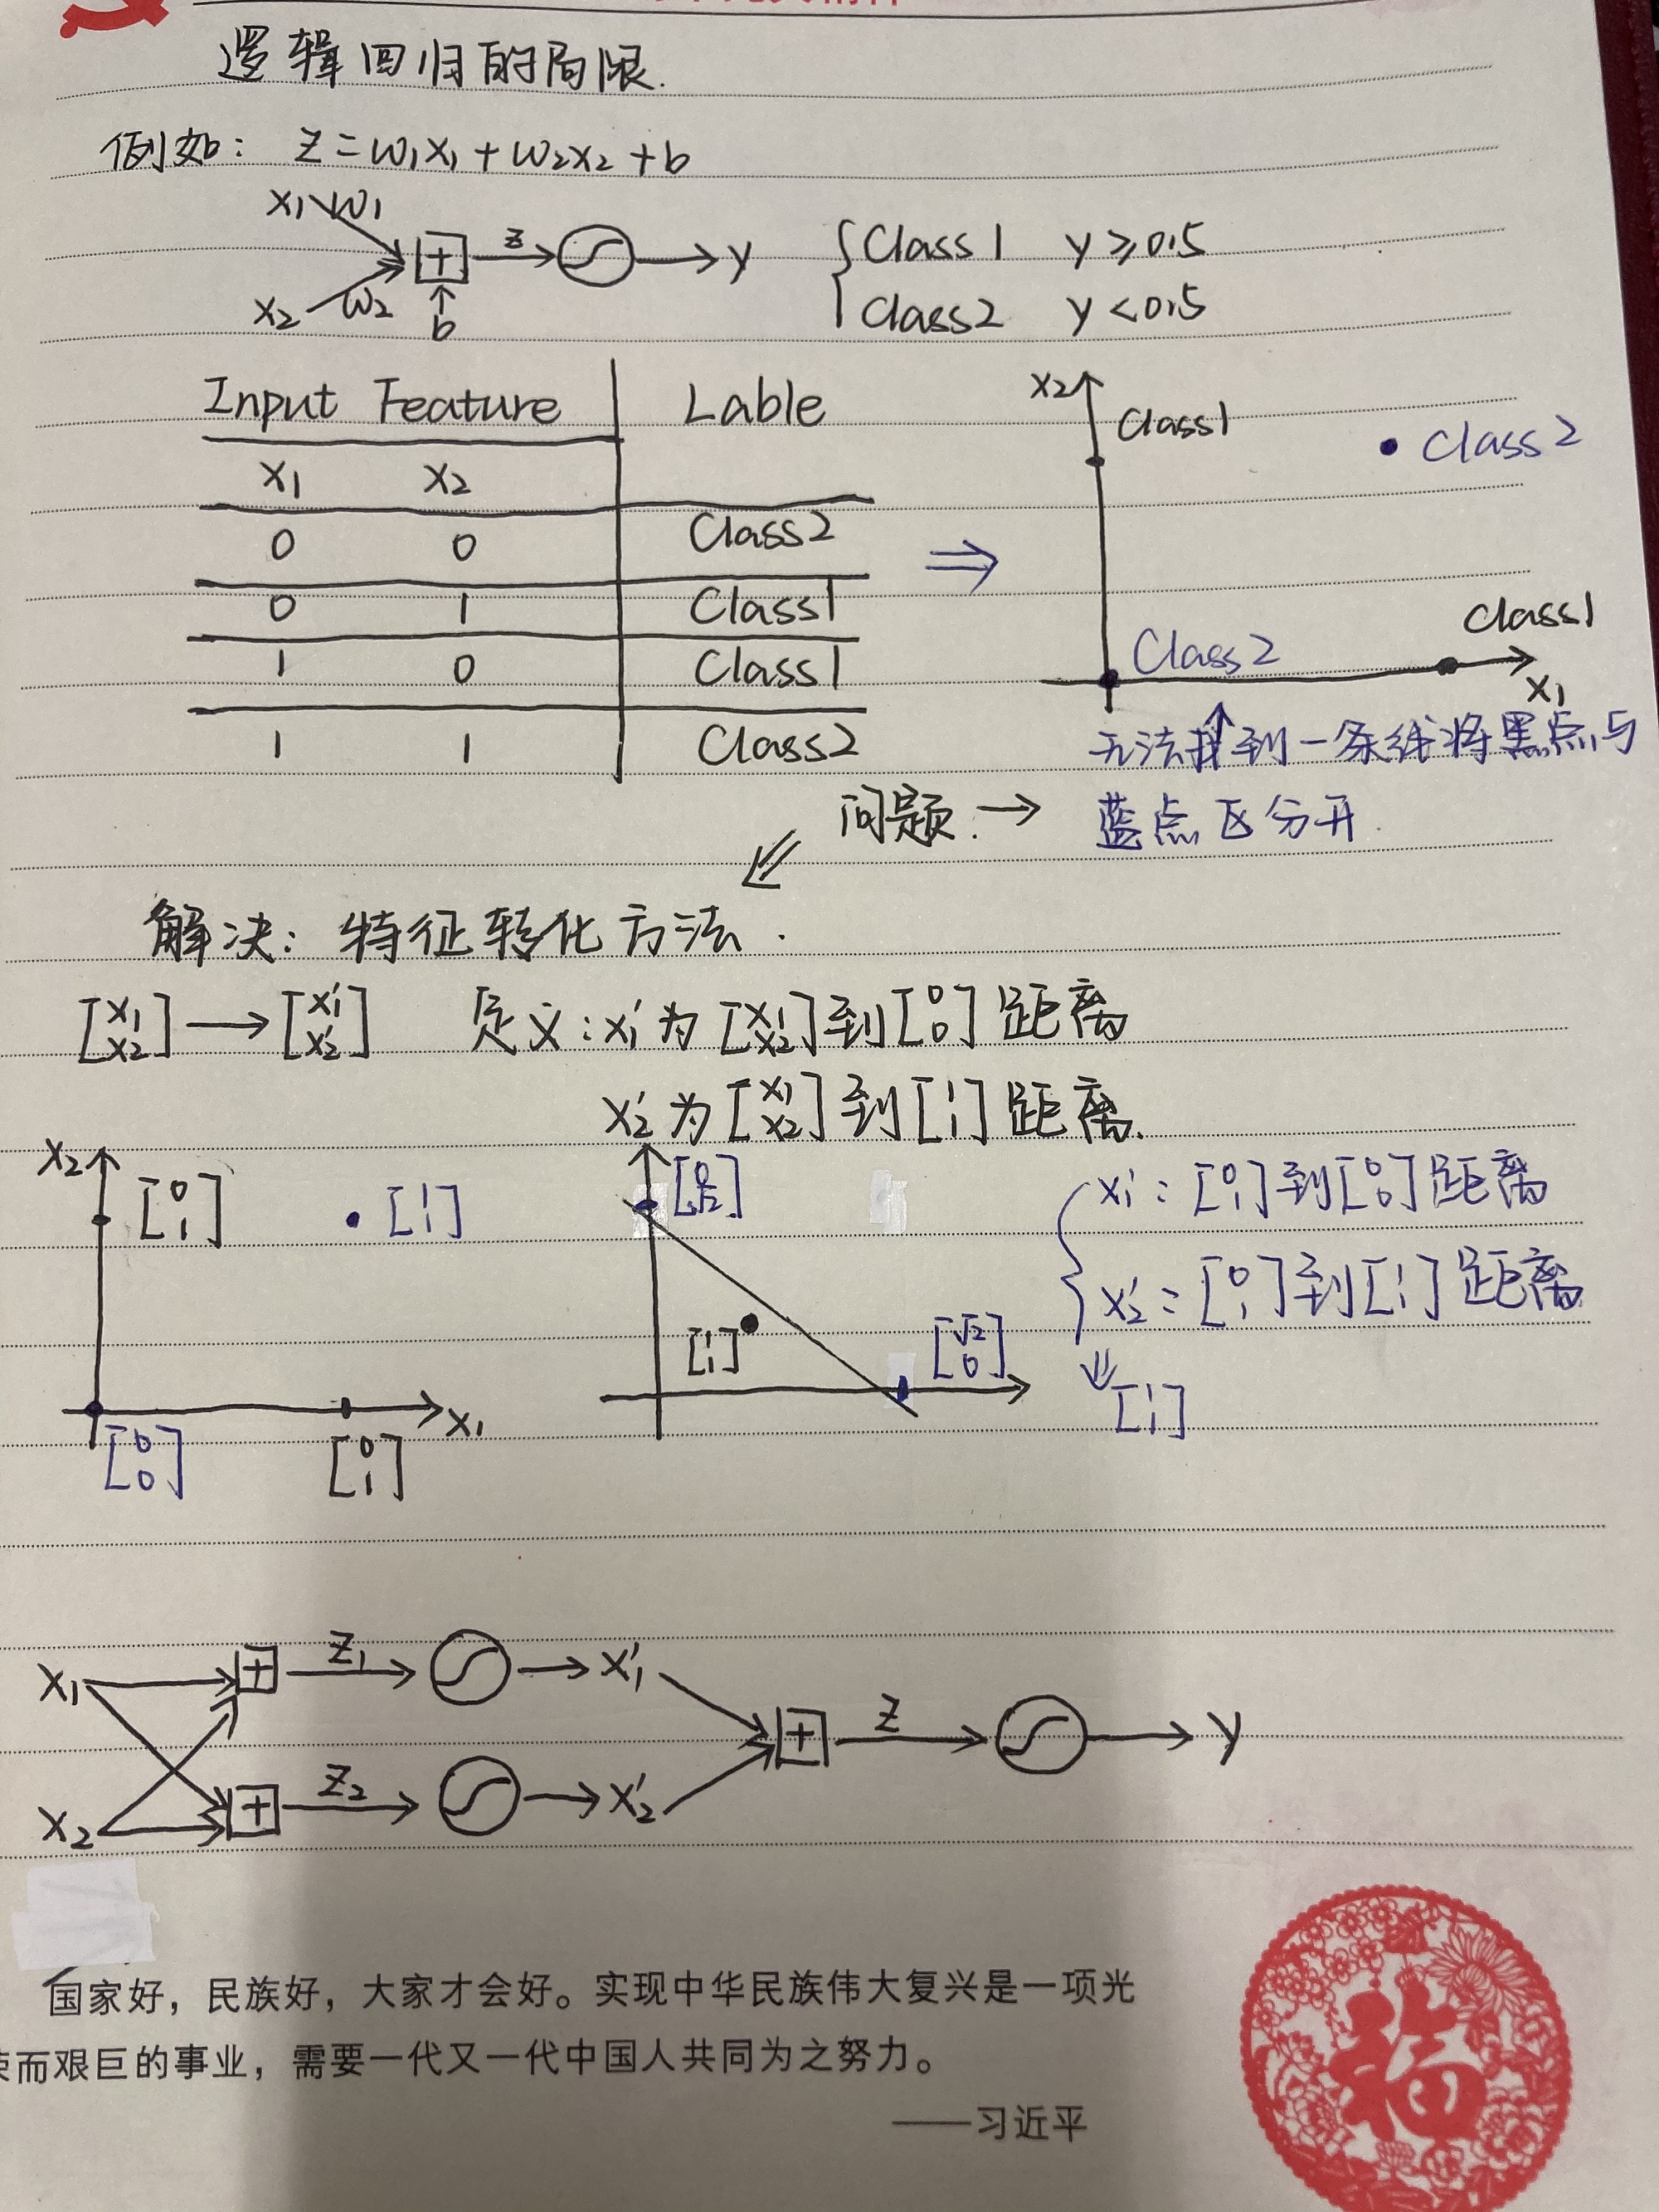 逻辑回归的局限.
例如: z=w₁x₁+w₂x₂+b
x₁ w₁
+ z y
x₂ w₂ b
{Class1 y≥0.5
Class2 y<0.5
Input Feature Lable
x₁ x₂
0 0 Class2
0 1 Class1
1 0 Class1
1 1 Class2
⇒
x₂ Class1
Class2
Class1
Class2
x₁
无法找到一条线将黑点与
问题: → 蓝点区分开.
解决: 特征转化方法.
[x₁ x₂] → [x₁' x₂'] 定义: x₁'为[x₁ x₂]到[0 0]距离
x₂'为[x₁ x₂]到[1 1]距离.
x₂ [0 1] [1 1]
[0 0] [0 1] x₁
[0 √2]
[1 1]
[√2 0]
{x₁': [0 1]到[0 0]距离
x₂': [0 1]到[1 1]距离
⇓ [1 1]
x₁ + z₁ x₁'
+ z y
x₂ + z₂ x₂'
国家好，民族好，大家才会好。实现中华民族伟大复兴是一项光
荣而艰巨的事业，需要一代又一代中国人共同为之努力。
——习近平
福